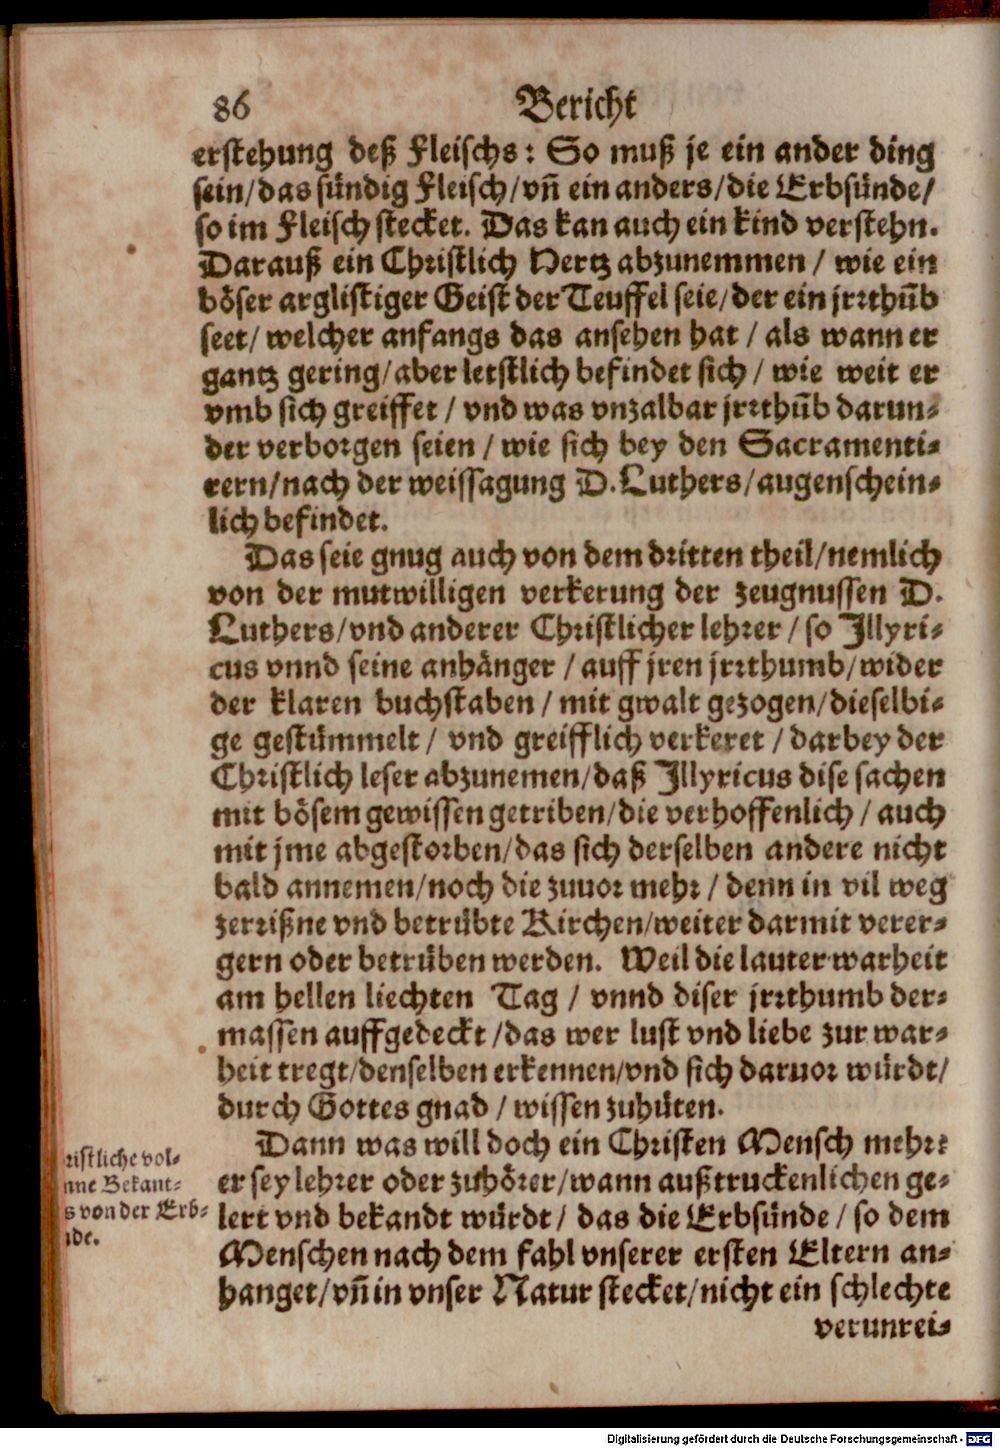 86 Bericht
erstehung deß Fleischs: So muß je ein ander ding
sein/das sündig Fleisch/vñ ein anders/die Erbsünde/
so im Fleisch stecket. Das kan auch ein kind verstehn.
Darauß ein Christlich Hertz abzunemmen / wie ein
böser arglistiger Geist der Teuffel seie/der ein jrrthũb
seet/ welcher anfangs das ansehen hat / als wann er
gantz gering/aber letstlich befindet sich / wie weit er
vmb sich greiffet / vnd was vnzalbar jrrthũb darun-
der verborgen seien / wie sich bey den Sacramenti-
rern/nach der weissagung D. Luthers/augenschein-
lich befindet.
Das seie gnug auch von dem dritten theil/nemlich
von der mutwilligen verkerung der zeugnussen D.
Luthers/vnd anderer Christlicher lehrer / so Illyri-
cus vnnd seine anhänger / auff jren jrrthumb/wider
der klaren buchstaben / mit gwalt gezogen/dieselbi-
ge gestümmelt / vnd greifflich verkeret / darbey der
Christlich leser abzunemen/daß Illyricus dise sachen
mit bösem gewissen getriben/die verhoffenlich / auch
mit jme abgestorben/das sich derselben andere nicht
bald annemen/noch die zuuor mehr / denn in vil weg
zerrißne vnd betrübte Kirchen/weiter darmit verer-
gern oder betrüben werden. Weil die lauter warheit
am hellen liechten Tag / vnnd diser jrrthumb der-
massen auffgedeckt /das wer lust vnd liebe zur war-
heit tregt/denselben erkennen/vnd sich daruor würdt/
durch Gottes gnad / wissen zuhüten.
Dann was will doch ein Christen Mensch mehr:
er sey lehrer oder zuhörer/wann außtruckenlichen ge-
lert vnd bekandt würdt/ das die Erbsünde / so dem
Menschen nach dem fahl vnserer ersten Eltern an-
hanget/vñ in vnser Natur stecket/nicht ein schlechte
verunrei-
ristliche vol-
nne Bekant-
s von der Erb-
nde.
Digitalisierung gefördert durch die Deutsche Forschungsgemeinschaft - DFG